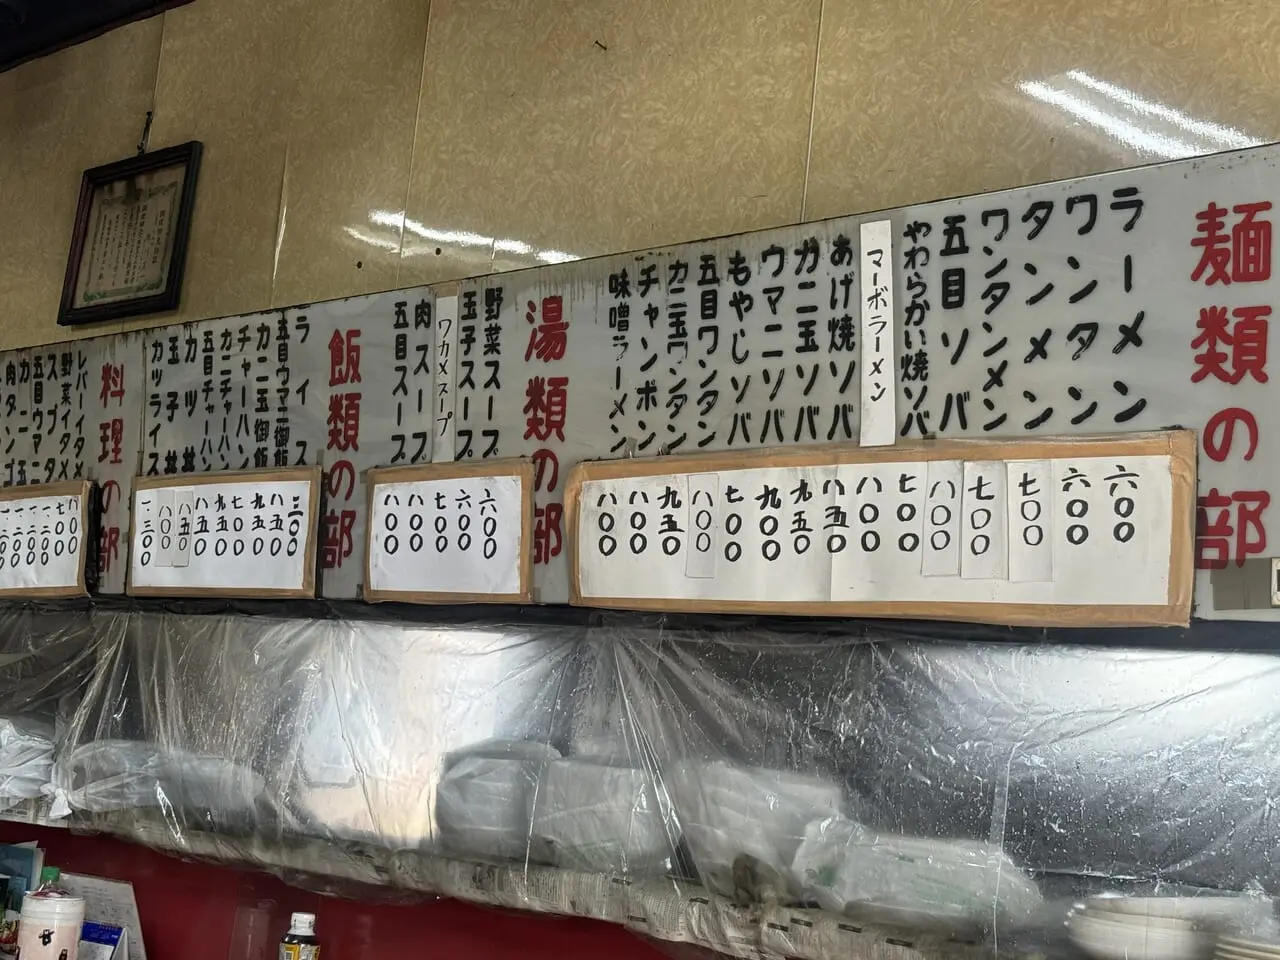 麺類の部
ラーメン
ワンタン
タンメン
ワンタンメン
五目ソバ
やわらかい焼ソバ
マーボラーメン
あげ焼ソバ
カニ玉ソバ
ウマニソバ
もやしソバ
五目ワンタン
カニ玉ワンタン
チャンポン
味噌ラーメン
六〇〇
六〇〇
七〇〇
七〇〇
八〇〇
七〇〇
八〇〇
八五〇
九五〇
九〇〇
七〇〇
八〇〇
九五〇
八〇〇
八〇〇
湯類の部
野菜スープ
玉子スープ
ワカメスープ
肉スープ
五目スープ
六〇〇
六〇〇
七〇〇
八〇〇
八〇〇
飯類の部
ライス
五目ウマニ御飯
カニ玉御飯
チャーハン
カニチャーハン
五目チャーハン
カツ丼
玉子丼
カツライス
八五〇
九五〇
七〇〇
九五〇
八五〇
八五〇
八〇〇
一三〇〇
料理の部
レバーイタメ
野菜イタメ
スブタ
五目ウマニ
カニ玉
八〇〇
七〇〇